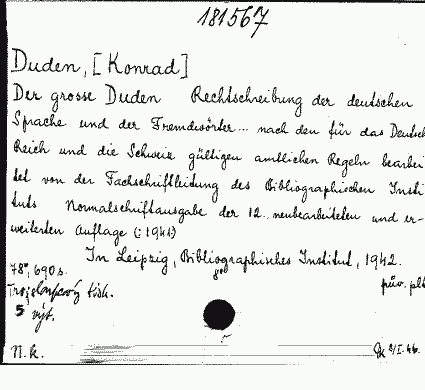 181567
Duden, [Konrad]
Der grosse Duden Rechtschreibung der deutschen
Sprache und der Fremdwörter ... nach den für das Deutsche
Reich und die Schweiz gültigen amtlichen Regeln bearbei-
tet von der Fachschriftleitung des Bibliographischen Insti-
tuts Normalschriftausgabe der 12. neubearbeiteten und er-
weiterten Auflage (: 1941)
In Leipzig, Bibliographisches Institut, 1942.
8°
690 s. pův. plt
tisk.
5 výt.
N. k. 2/I. 46.